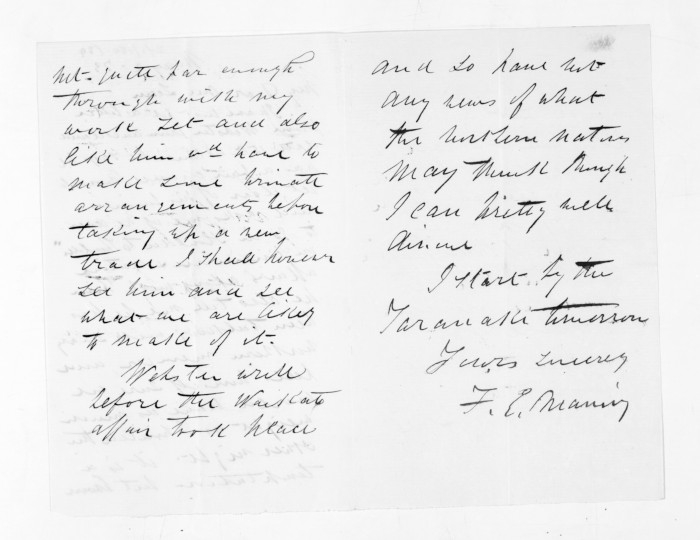 not quite far enough
through with my
work yet and also
like him wd have to
make some private
arrangements before
taking up a new
trade I shall however
see him and see
what we are likely
to make of it.
Webster
before the Waikato
affair took place
and so have not
any news of what
the northern natives
may think though
I can pretty well
divine
I start by the
Taranaki tomorrow
Yours sincerely
F. E. Maning